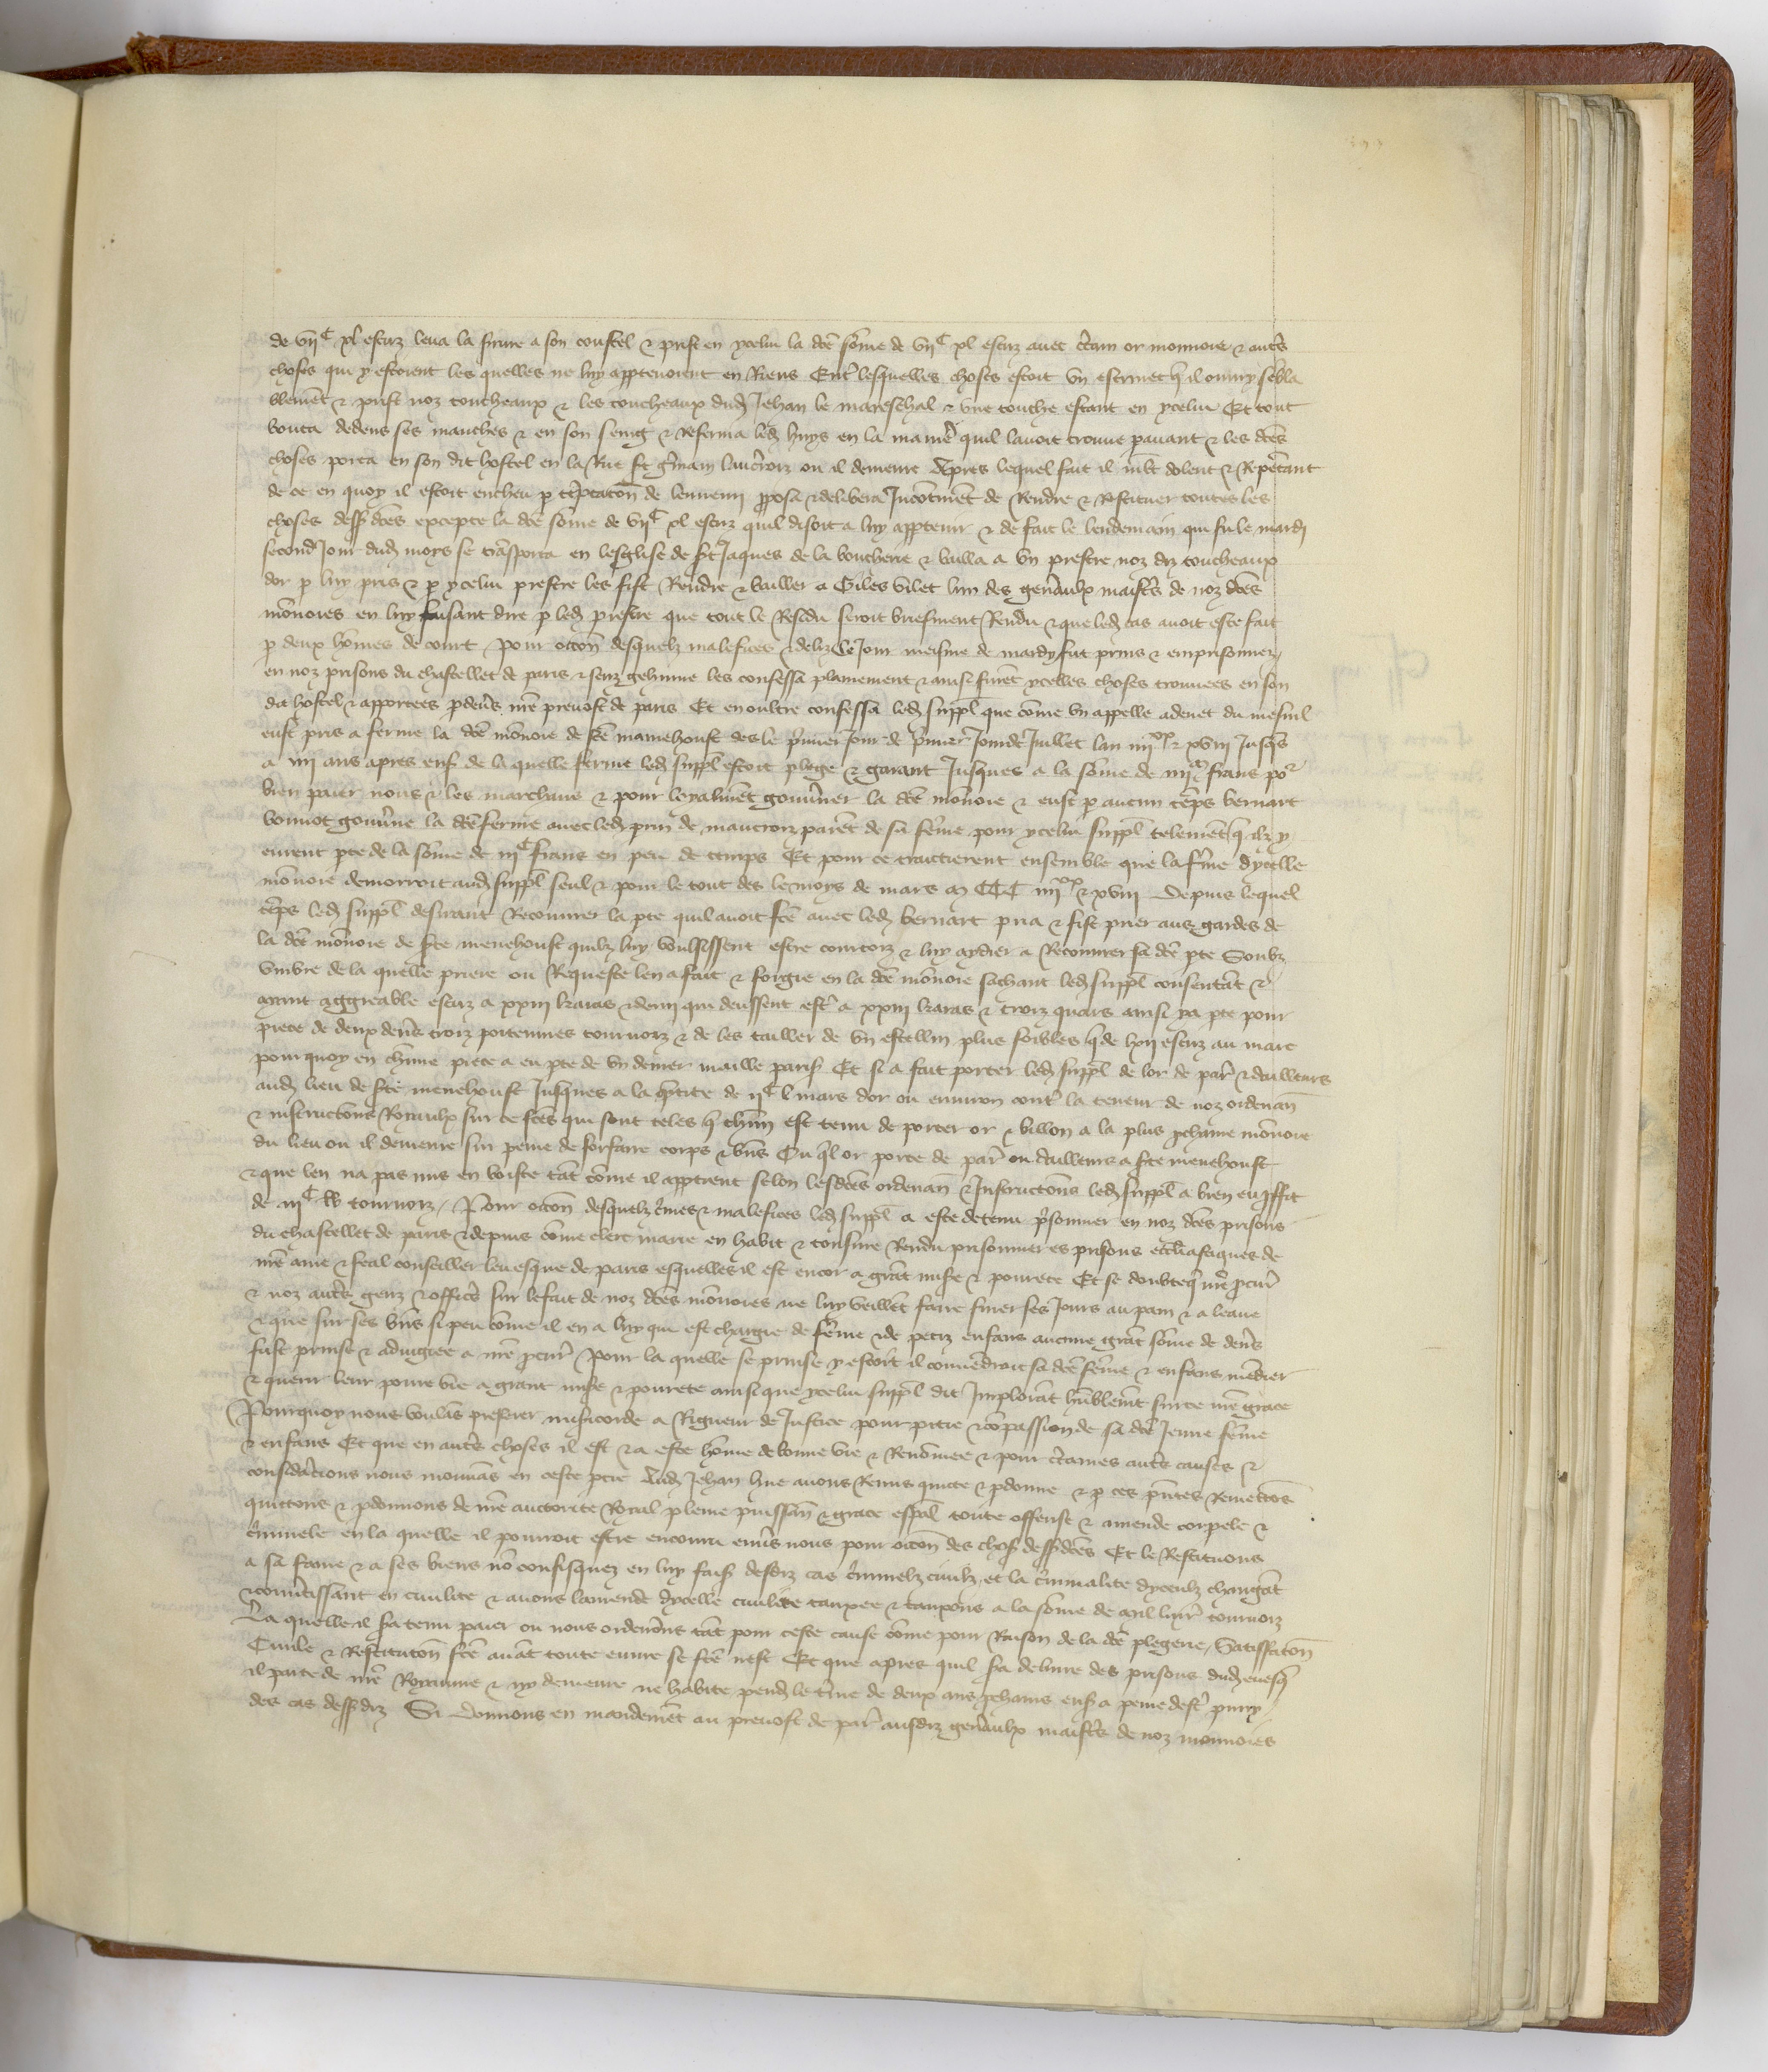 de vii^c xl escuz leva la serrure a son coustel & prist en ycelui la dce some de vii^c xl escuz avec ctain or monnoié & autres
choses qui y estoient les quelles ne luy apptenoient en Riens Entre lesquelles choses estoit un escrinet qil ouvry sebla
blement & prist noz toucheaux & les toucheaux dud Jehan le mareschal & une touche estant en ycelui Et tout
bouta dedens ses manches & en son seing & Referma led huys en la maniere quil lavoit trouve pavant & les dces
choses porta en son dit hostel en la Rue st gmain laucerroiz ou il demeure Apres lequel fait il dolent & Repetant
de ce en quoy il estoit encheu p teptacon de lennemi pposa & delibera Incontinet de Rendre & Restituer toutes les
choses dess dces excepte la dce some de vii^c xl escuz quil disoit a luy apptenir & de fait le lendemain qui fu le mardi
second Jour dud moys se trasporta en leglise de st Jaques de la boucherie & bailla a un prestre noz diz toucheaux
dor p luy pris & p ycelui prestre les fist Rendre & bailler a Giles vilet lun des generaulx maistres de noz dces
monoies en luy faisant dire p led prestre que tout le Residu seroit briefment Rendu & que led cas avoit este fait
p deux homes de court Pour occon desquelz malefices & deliz Ce Jour meisme de mardy fut prins & emprisonnez
en noz prisons du chastellet de paris & senz gehinne les confessa plainement & ainsi furent ycelles choses trouvees en son
dit hostel & apportees pdevers nre prevost de paris Et en oultre confessa led suppl que come un appelle adenet du mesnil
eust pris a ferme la dce monoie de ste manehoust des le premier Jour de premier Jour de Juillet lan iiii^xx & xviii Jusqs
a iiii ans apres ens de la quelle ferme led suppl estoit plege & garant Jusques a la some de iiii^m frans por
bien paier nous & les marchans & pour leyalment gouverner la dce monoie & eust p aucun temps bernart
bonnot gouverne la dce ferme avec led de maucroiz parent de sa feme pour ycelui suppl telement q ilz y
eurent pte de la some de iii^c frans en peu de temps Et pour ce traictierent ensemble que la ferme dycelle
monoie demorroit aud suppl seul & pour le tout des le moys de mars m CCC iiii^xx & xviii Depuis lequel
temps led suppl desirant Recouvrer la pte quil avoit fce avec led bernart pria & fist prier aus gardes de
la dce monoie de ste menehoust quilz luy voulsissent estre courtoiz & luy aydier a Recouvrer sa dce pte Soubz
umbre de la quelle priere ou Requeste len a fait & forgie en la dce monoie sachant led suppl consentat &
ayant aggreable escuz a xxiii karas & demi qui deussent estre a xxiii karas & troiz quars ainsi ya pte pour
piece de deux deniers troiz poitevines tournoiz & de les tailler de un estellin plus foibles q de lxii escuz au marc
pour quoy en chune piece a eu pte de un denier maille paris Et si a fait porter led suppl de lor de par & dailleurs
aud lieu de ste menehoust Jusques a la qtite de ii^c l mars dor ou environ contre la teneur de noz ordenan
& instructions Royaulx sur ce fces qui sont teles q chun est tenu de porter or & billon a la plus pchaine monoie
du lieu ou il demeure sur peine de forfaire corps & biens Ou ql or porte de par ou dailleurs a ste menehoust
& que len na pas mis en boiste tat come il apptient selon lesdces ordenan & Instructions led suppl a bien eu pffit
de iii^c tournoiz. Pour occon desquelz crimes & malefices led suppl a este detenu prisonnier en noz dces prisons
du chastellet de paris & depuis come clerc marie en habit & tonsure Rendu prisonnier es prisons ecclesiastiques de
nre ame & feal conseiller levesque de paris esquelles il est encor a grat misere & povrete Et se doubte q nre pcur
& noz autres genz & officiers sur le fait de noz dces monoies ne luy veillent faire finer ses Jours au pain & a leaue
& que sur ses biens si peu come il en a luy qui est chargie de feme & de petiz enfans aucune grat some de deniers
fust prinse & adiugiee a nre pcur Pour la quelle se prinse y estoit il convedroit sa dce feme & enfans mendier
& querir leur povre vie a grant misere & povrete ainsi que ycelui suppl dit Implorat humblemt sur ce nre grace
Pourquoy nous voulas preferer misericorde a Rigueur de Justice pour pitie & copassion de sa dce Jeune feme
& enfans Et que en autres choses il est & a este home de bonne vie & Renomee & pour ctaines autres causes &
considacions nous mouvas en ceste ptie Aud Jehan hue avons Remis quicte & pdonne & p ces pntes Remettos
quictons & pdonnons de nre auctorite Royal pleine puissan & grace espal toute offense & amende corpele &
criminele en la quelle il pourroit estre encouru envers nous pour occon des chos dess dces Et le Restituons
a sa fame & a ses biens no confisquez en luy fais desdiz cas criminelz civilz et la criminalite dyceulz changat
& convertissant en civilite & avons lamende dycelle civilite tauxee & tauxons a la some de mil livres tournoiz
La quelle il sera tenu paier ou nous ordenerons tat pour ceste cause come pour Raison de la dce plegerie, Satisffacon
Civile & Restitucon fce avat toute euvre se fce nest Et que apres quil sera delivre des prisons dud evesq
il parte de nre Royaume & ny demeure ne habite pend le terme de deux ans pchains ens a peine destre puny
des cas dess diz Si Donnons en mandement au prevost de par ausdiz generaulx maistres de noz monnoies